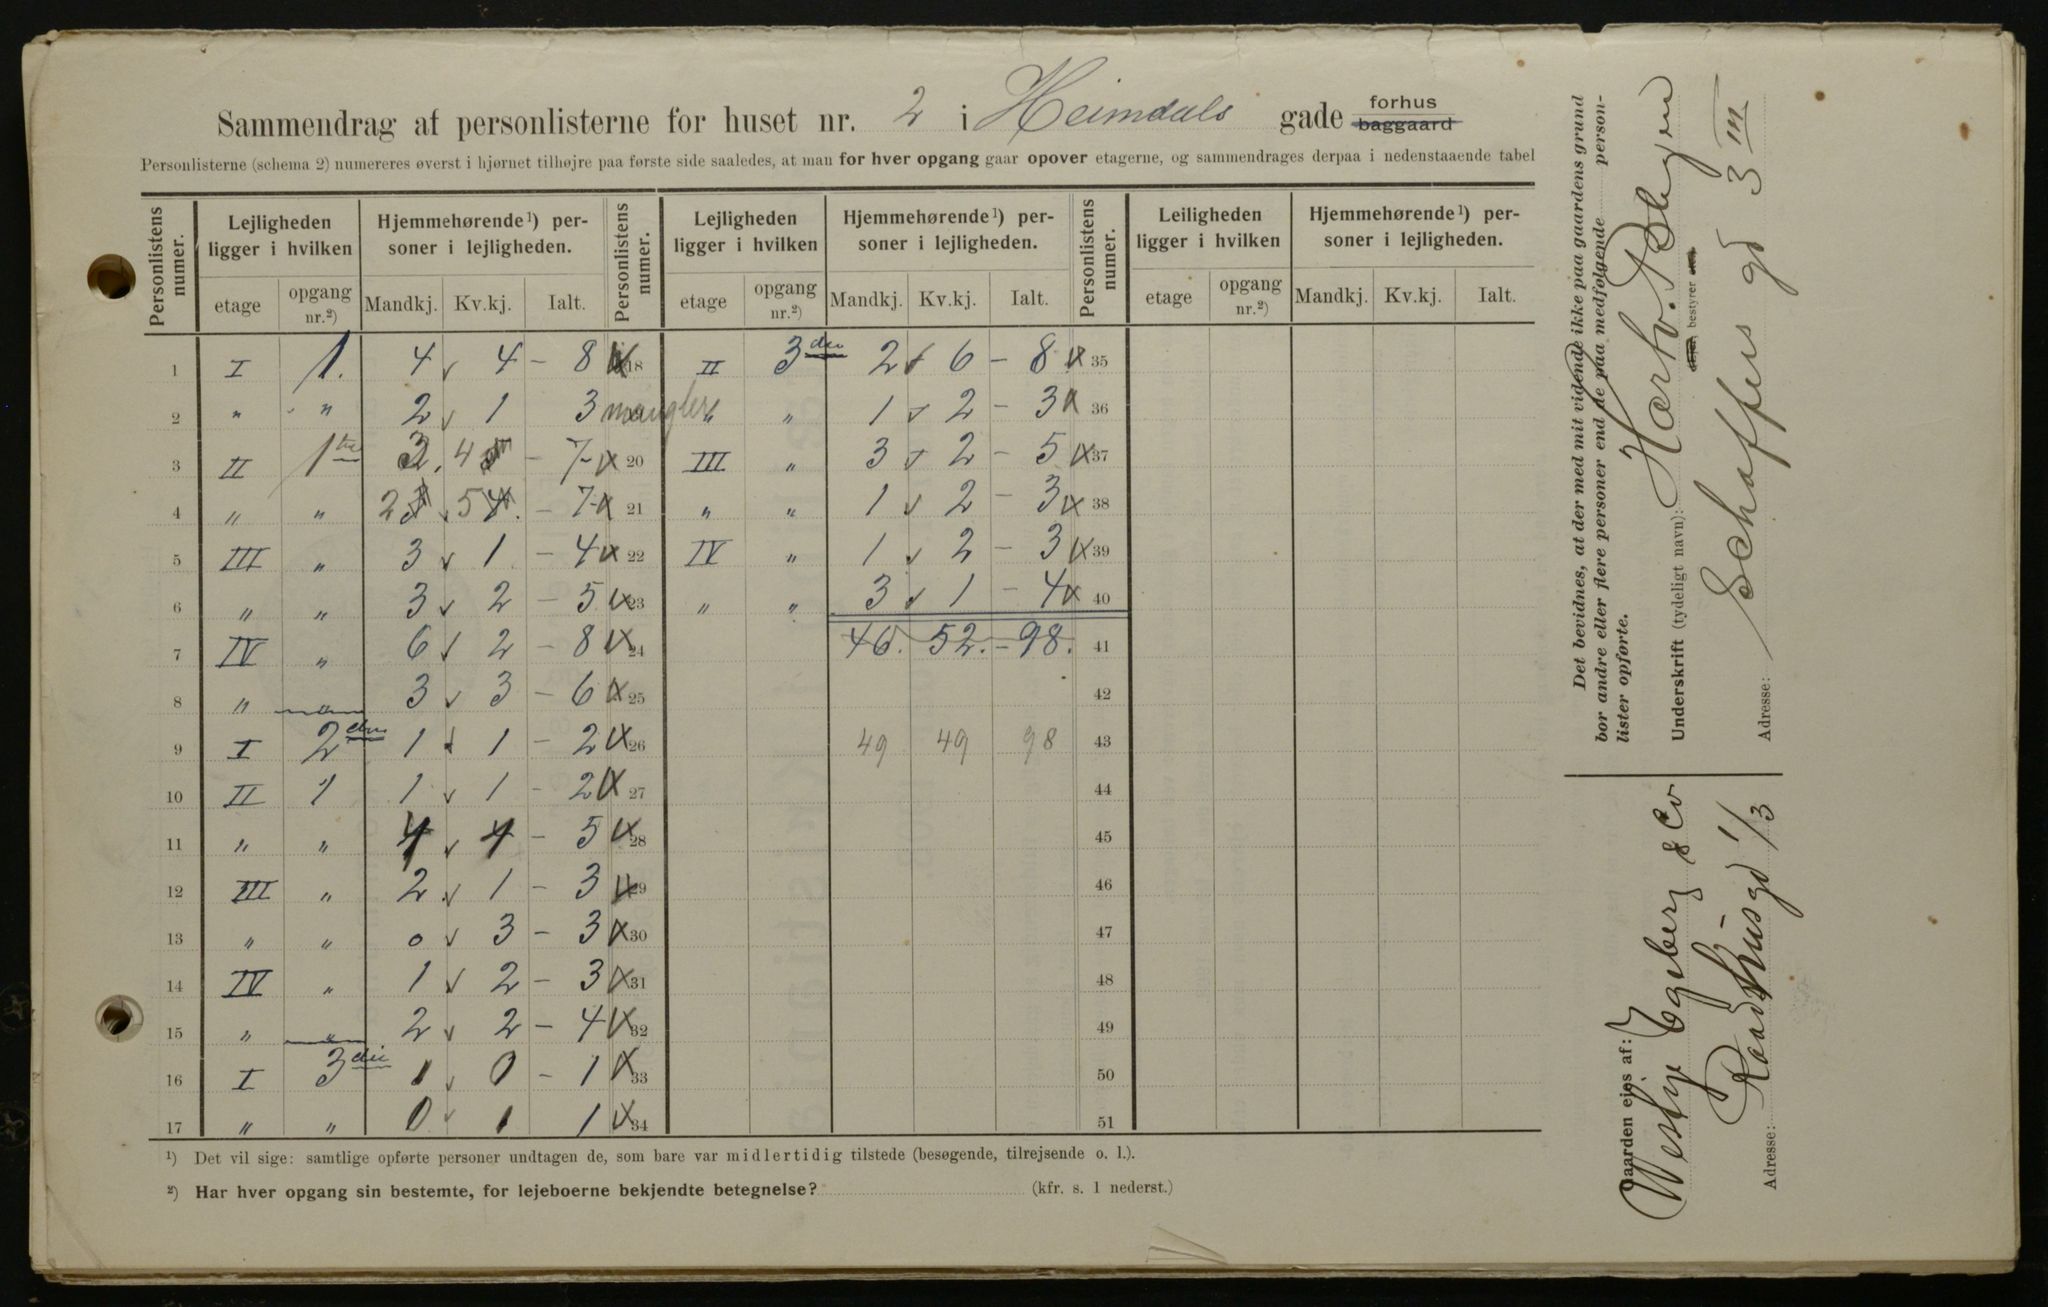 Sammendrag af personlisterne for huset nr. 2 i Heimdals gade forhus baggaard
Personlisterne (schema 2) numereres øverst i hjørnet tilhøjre paa første side saaledes, at man for hver opgang gaar opover etagerne, og sammendrages derpaa i nedenstaaende tabel
Personlistens numer. Lejligheden ligger i hvilken Hjemmehørende¹) personer i lejligheden. Personlistens numer. Lejligheden ligger i hvilken Hjemmehørende¹) personer i lejligheden. Personlistens numer. Leiligheden ligger i hvilken Hjemmehørende¹) personer i lejligheden.
etage opgang nr.²) Mandkj. Kv.kj. Ialt. etage opgang nr.²) Mandkj. Kv.kj. Ialt. etage opgang nr.²) Mandkj. Kv.kj. Ialt.
1 I 1. 4 4 - 8 18 II 3die 2 6 - 8 35
2 " " 2 1 3 mangler " " 1 2 - 3 36
3 II 1ste 3 4 - 7 20 III " 3 2 - 5 37
4 " " 2 5 - 7 21 " " 1 2 - 3 38
5 III " 3 1 - 4 22 IV " 1 2 - 3 39
6 " " 3 2 - 5 23 " " 3 1 - 4 40
7 IV " 6 2 - 8 24 46. 52. - 98. 41
8 " " 3 3 - 6 25 42
9 I 2den 1 1 - 2 26 49 49 98 43
10 II " 1 1 - 2 27 44
11 " " 4 - 5 28 45
12 III " 2 1 - 3 29 46
13 " " 0 3 - 3 30 47
14 IV " 1 2 - 3 31 48
15 " " 2 2 - 4 32 49
16 I 3die 1 0 - 1 33 50
17 " " 0 1 1 34 51
¹) Det vil sige: samtlige opførte personer undtagen de, som bare var midlertidig tilstede (besøgende, tilrejsende o. l.).
²) Har hver opgang sin bestemte, for lejeboerne bekjendte betegnelse? (kfr. s. 1 nederst.)
Det bevidnes, at der med mit vidende ikke paa gaardens grund
bor andre eller flere personer end de paa medfølgende personlister opførte.
Underskrift (tydeligt navn):
bestyrer
Adresse: Schaffers gd 3 III
Gaarden ejes af: Westye Egeberg & Co
Adresse: Raadhusgd 1/3